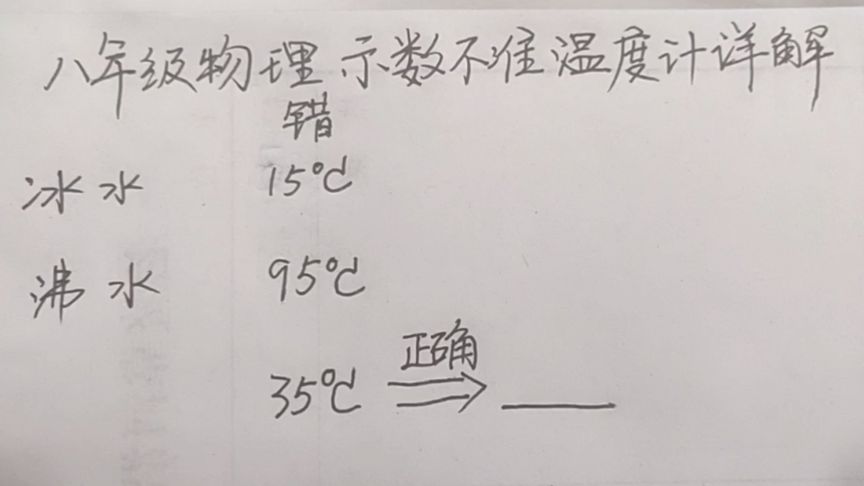 八年级物理 示数不准温度计详解
错
冰水 15℃
沸水 95℃
正确
35℃ ⇒ ____